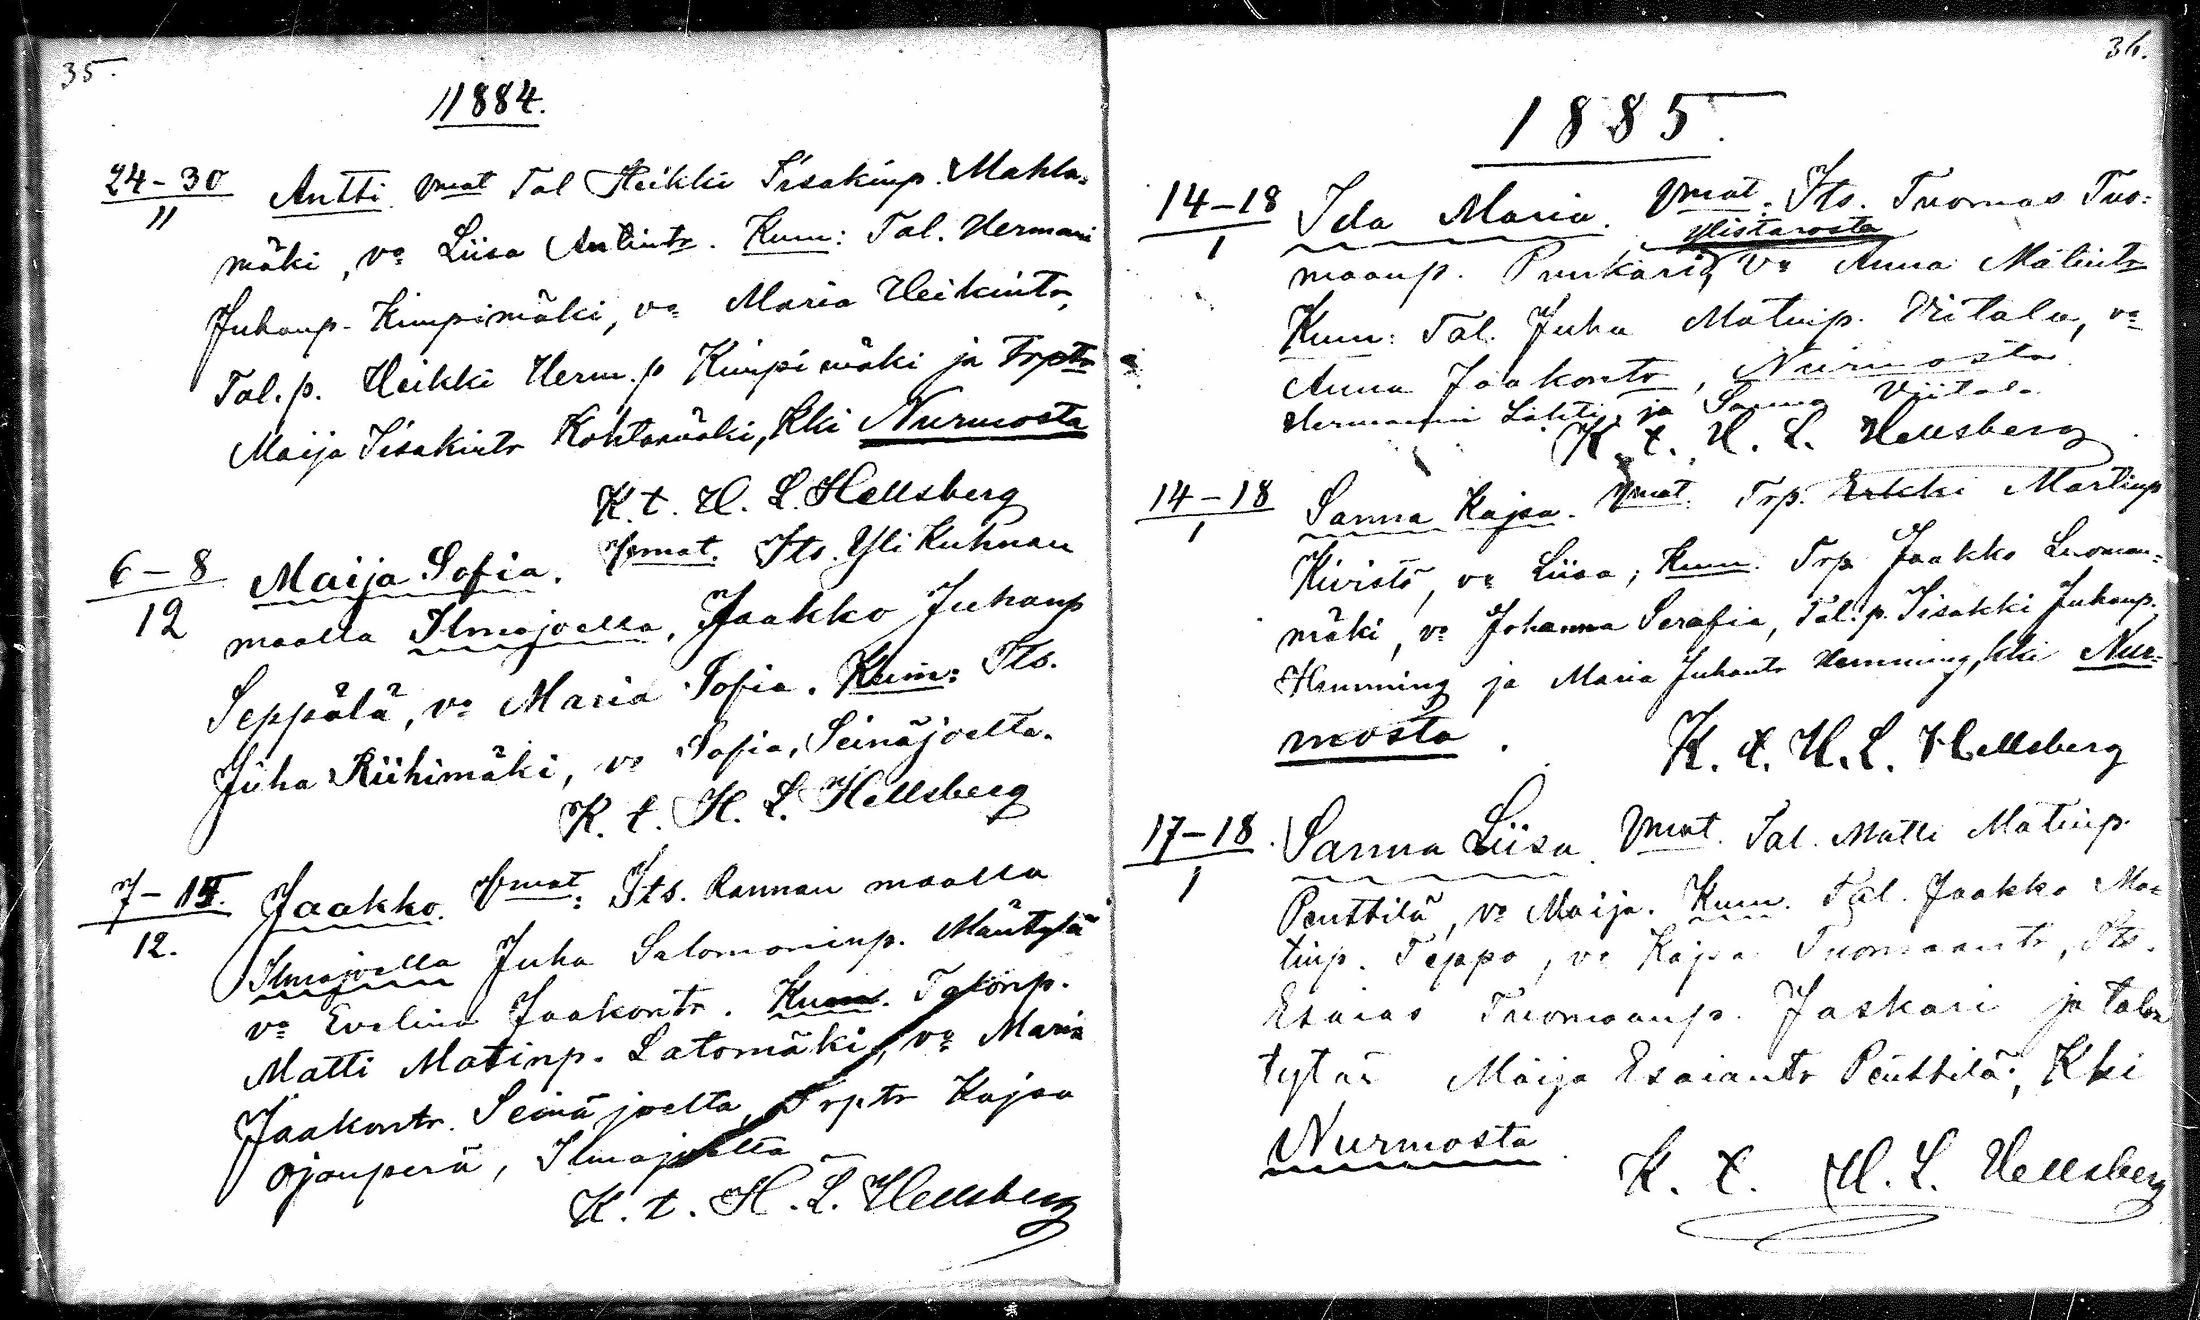 35.
1884.
24-30
11
Antti. Vmat Tal Heikki Iisakinp. Mahla-
mäki, vo Liisa Antintr. Kum: Tal. Hermanni
Juhanp. Kimpimäki, vo Maria Heikintr,
Tal.p. Heikki Herm.p Kimpimäki ja Trptr
Maija Iisakintr Kohtamäki, Kki Nurmosta
K. t. H. L. Hellsberg
6-8
12
Maija Sofia. Vmat. Its. Yli Kuhnan
maalla Ilmajoella, Jaakko Juhanp
Seppälä, vo Maria Sofia. Kum: Its.
Juha Riihimäki, vo Sofia, Seinäjoelta.
K. t. H. L. Hellsberg
7-14.
12.
Jaakko. Vmat: Its. Rannan maalla
Ilmajoella Juha Salomoninp. Mäntylä
vo Evelina Jaakontr. Kum. Talonp.
Matti Matinp. Latomäki, vo Maria
Jaakontr. Seinäjoelta, Trptr Kajsa
Ojanperä, Ilmajoelta
K. t. H. L. Hellsberg
36.
1885.
14-18
1
Ida Maria. Vmat. Its. Tuomas Tuo-
Ylistarosta
maanp. Punkari, vo Anna Matintr
Kum: Tal. Juha Matinp. Viitala, vo
Anna Jaakontr, Nurmosta
Hermanni Lahti ja Sanna Viitala
K. t. H. L. Hellsberg
14-18
1
Sanna Kajsa. Vmat. Trp. Erkki Martinp
Kivistö, vo Liisa; Kum. Trp Jaakko Luoman-
mäki, vo Johanna Serafia, Tal.p. Iisakki Juhanp.
Hemming ja Maria Juhantr Hemming, kki Nur-
mosta.
K. t. H. L. Hellsberg
17-18.
1
Sanna Liisa. Vmat. Tal. Matti Matinp.
Penttilä, vo Maija. Kum. Tal. Jaakko Ma-
tinp. Teppo, vo Kajsa Tuomaantr, Its.
Esaias Tuomaanp. Jaskari ja talon
tytär Maija Esaiantr Penttilä, Kki
Nurmosta.
K. t. H. L. Hellsberg